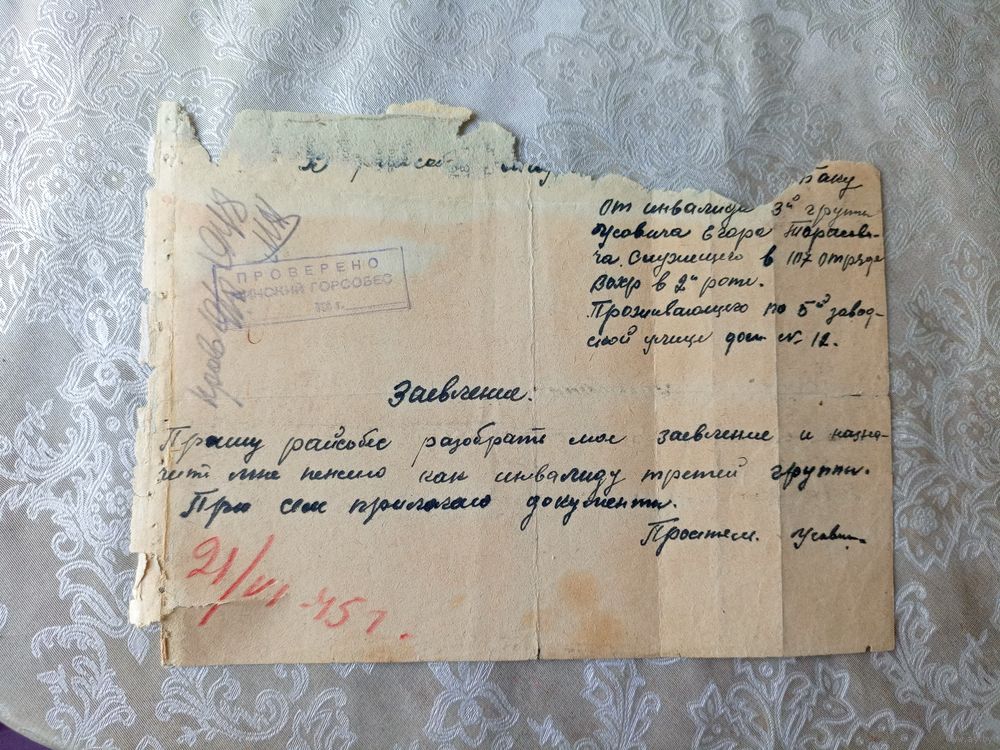 Баку
От инвалида 3й группы
Усовича Егора Тараеви-
ча. Служащего в 107 отряде
Вохр в 2й роте.
Проживающего по 5й завод-
ской улице дом № 12.
ПРОВЕРЕНО
ИНСКИЙ ГОРСОБЕС
Заевление.
Прошу райсобес разобрать мое заевление и назна-
чить мне пенсию как инвалиду третей группы.
При сем прилогаю документы.
Проситель Усович
21/VI-45 г.